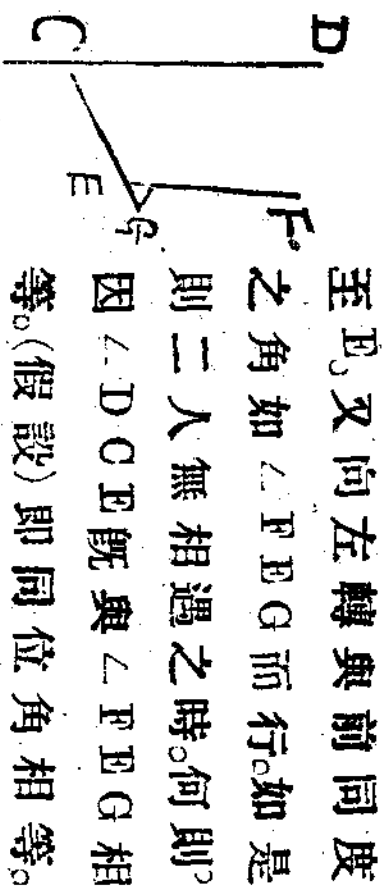 D
C
E
G
F
至E,又向左轉與前同度
之角如∠FEG而行。如是
則二人無相遇之時。何則。
因∠DCE既與∠FEG相
等。(假設)即同位角相等。